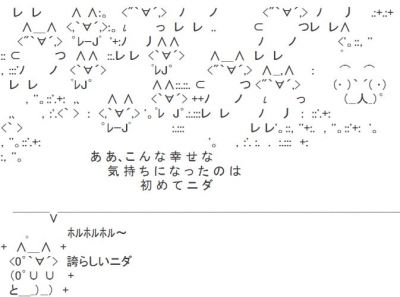 ああ、こんな幸せな
気持ちになったのは
初めてニダ
ﾎﾙﾎﾙﾎﾙ～
誇らしいニダ